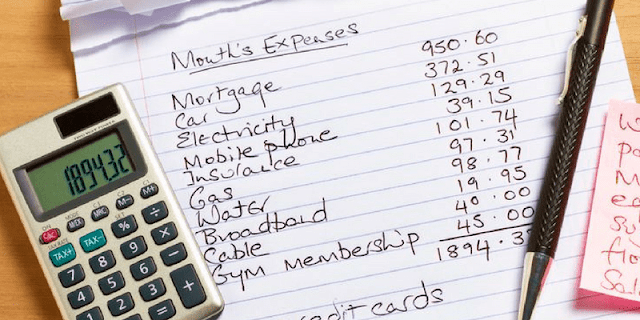 Month's Expenses
Mortgage 950·60
Car 372·51
Electricity 129·29
Mobile phone 39·15
Insurance 101·74
Gas 97·31
Water 98·77
Broadband 19·95
Cable 40·00
Gym Membership 45·00
1894·3
credit cards
1894.32
MRC M- M+
TAX+ TAX- % ÷
7 8 9 ×
4 5 6 -